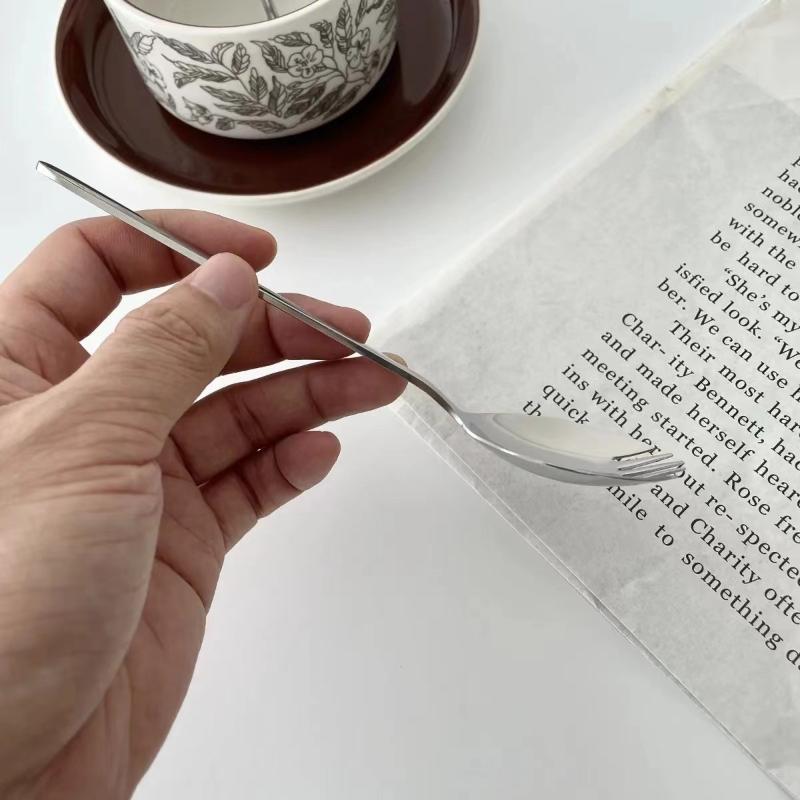 noble
somew
with the
be hard to
"She's my
isfied look. "We
ber. We can use h
Their most hard
Char- ity Bennett, had
and made herself heard
meeting started. Rose fre
ins with her
quick but re- spected
th and Charity ofte
smile to something d